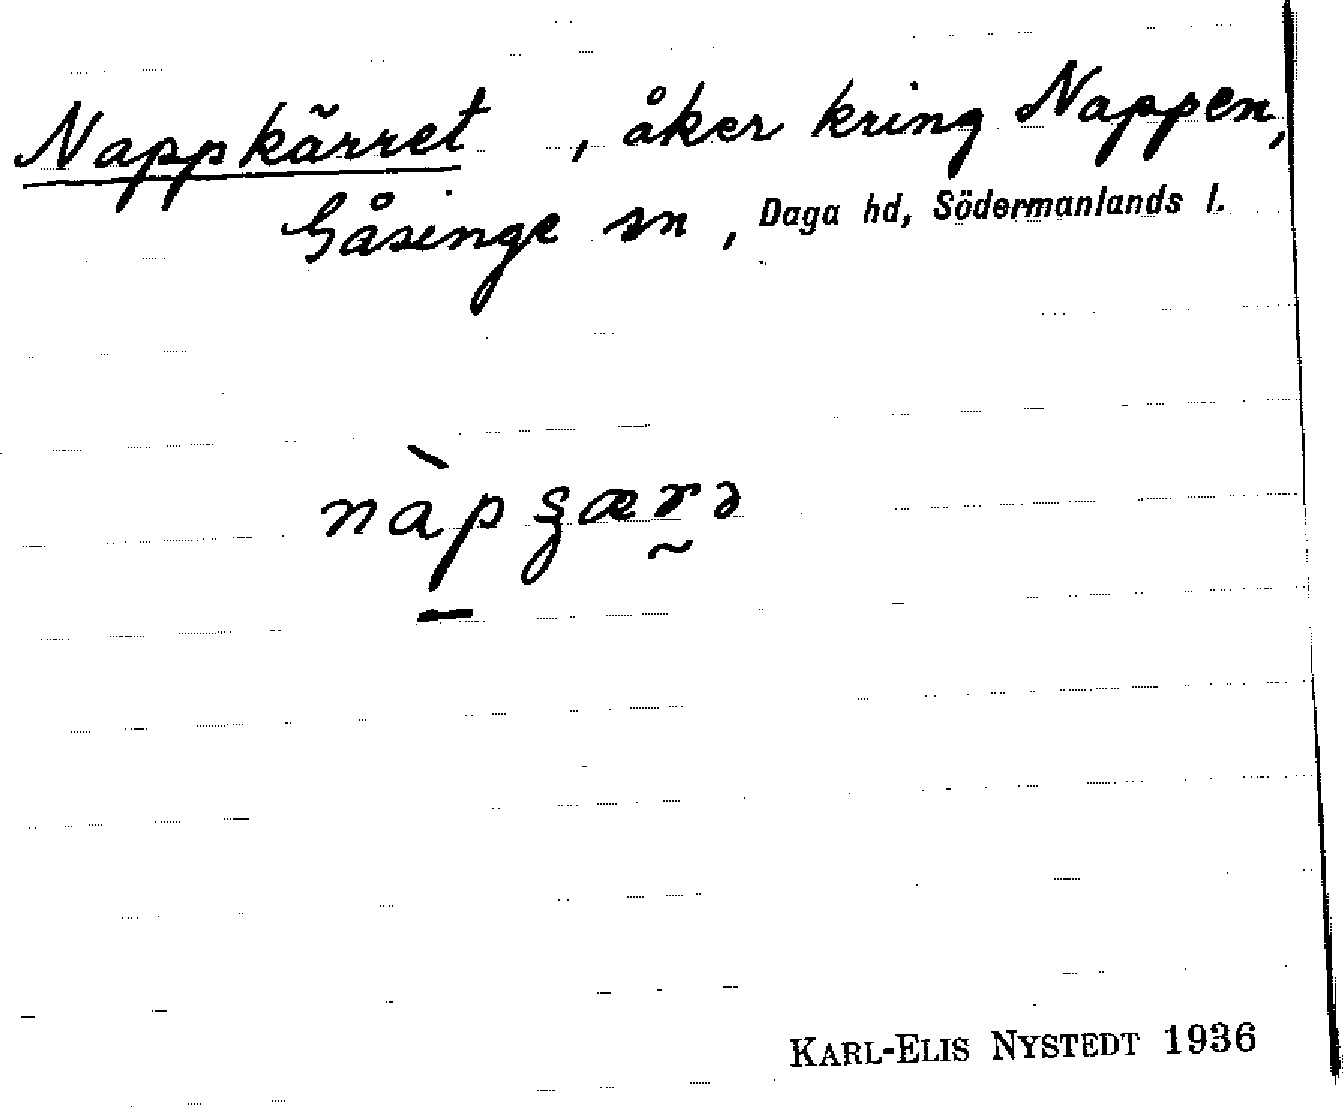 Nappkärret, åker kring Nappen,
Gåsinge sn, Daga hd, Södermanlands l.
KARL-ELIS NYSTEDT 1936